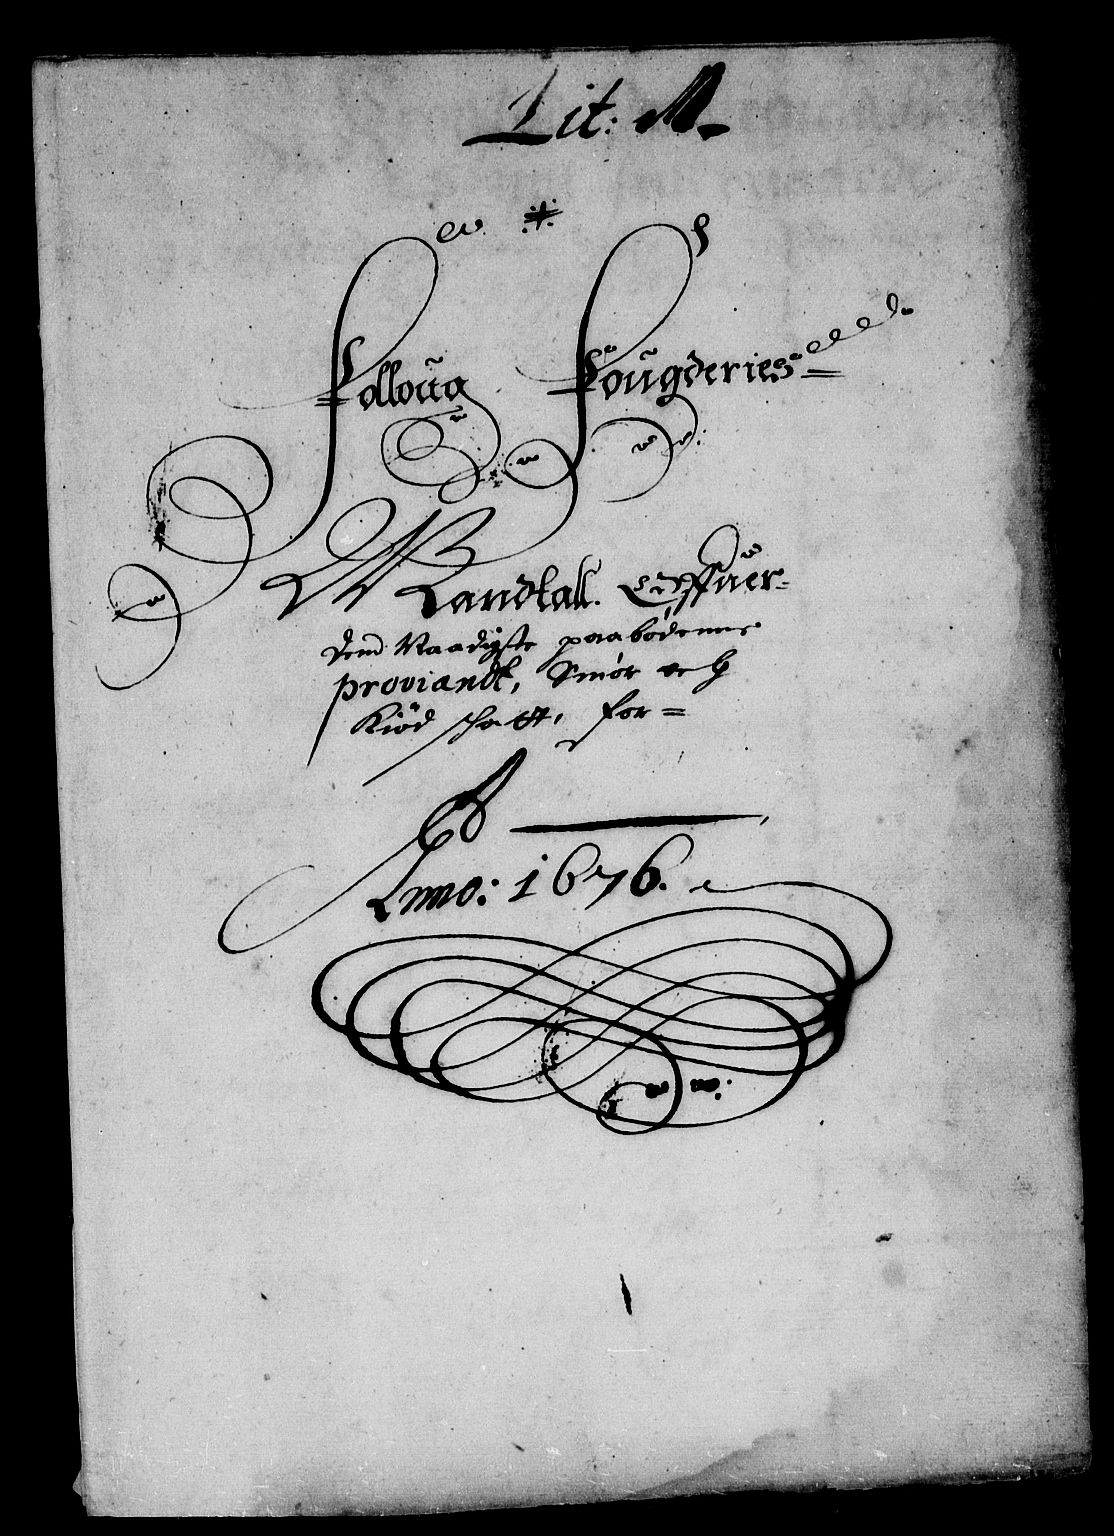 Lit: M.
Folloug Fougderies
Mandtall. Offuer
dend Naadigste paabødenne
proviandt, Smør och
Kiød schatt, for
Anno: 1676.